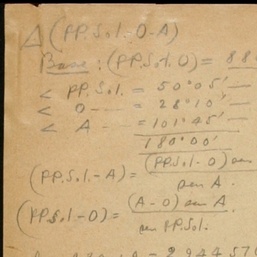 △ (P.P.Sol.-O-A)
Base: (P.P.Sol.O) = 88
< P.P.Sol. = 50°05'—
< O --- = 28°10'—
< A - = 101°45'—
180°00'
(P.P.Sol.-A) = (P.P.Sol.-O) sen
sen A.
(P.P.Sol.-O) = (A-O) sen A
sen P.P.Sol.
= 2944570